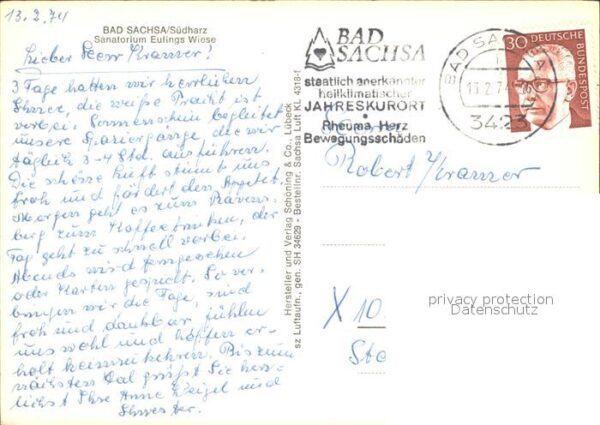 13.2.74
BAD SACHSA/Südharz
Sanatorium Eulings Wiese
Lieber Herr Kranzer!
3 Tage hatten wir herrlichen
Schnee, die weiße Pracht ist
vorbei. Sonnenschein begleitet
unsere Spaziergänge die wir
täglich 3-4 Std. ausführen.
Die schöne Luft stimmt uns
froh und fördert den Appetit.
Morgen geht es zum Ravens-
berg zum Kaffeetrinken, der
Tag geht zu schnell vorbei.
Abends wird ferngesehen
oder Karten gespielt. So ver-
bringen wir die Tage, sind
froh und dankbar, fühlen
uns wohl und hoffen er-
holt heimzukehren. Bis zum
nächsten Mal grüßt Sie herz-
lichst Ihre Anne Weigel und
Schwester.
Hersteller und Verlag Schöning & Co., Lübeck
sz Luftaufn., gen. SH 34629 - Bestellnr. Sachsa Luft KL 4318-f
BAD
SACHSA
staatlich anerkannter
heilklimatischer
JAHRESKURORT
Rheuma, Herz
Bewegungsschäden
BAD SA
13.2.74
3423
30
DEUTSCHE
BUNDESPOST
Robert Kranzer
X 10
privacy protection
Datenschutz